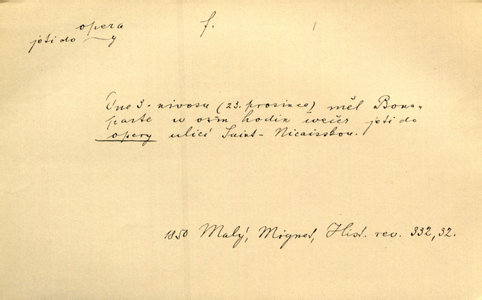 opera f.
jeti do —y
Dne 3. nivosu (23. prosince) měl Bona-
parte w osm hodin wečer jeti do
opery ulicí Saint-Nicaisskou.
1850 Malý, Mignet, Hist. rev. 332, 32.